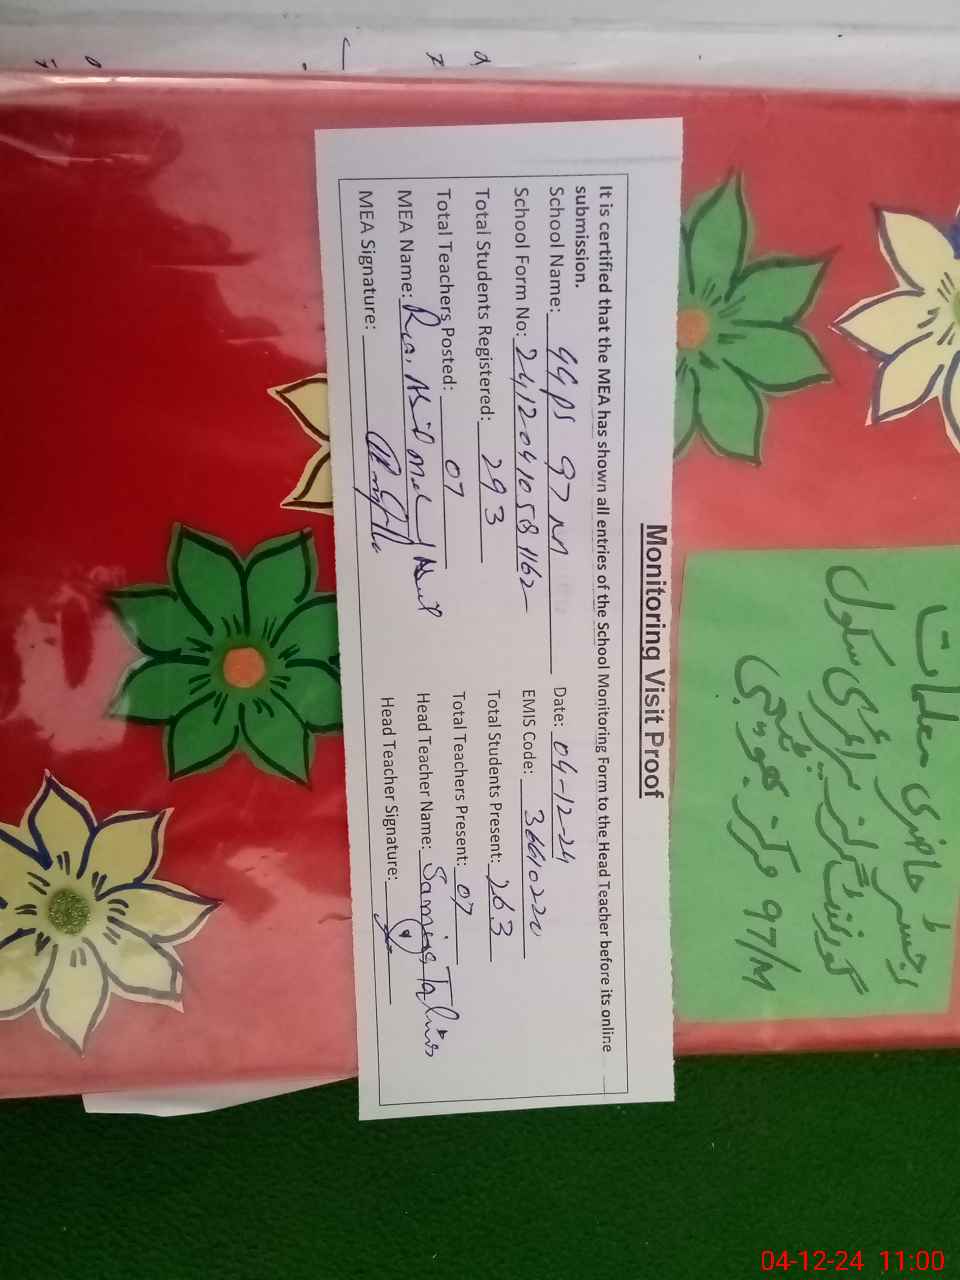 Monitoring Visit Proof
It is certified that the MEA has shown all entries of the School Monitoring Form to the Head Teacher before its online
submission.
School Name: GGPS 97 M Date: 04-12-24
School Form No: EMIS Code: 36610220
Total Students Registered: 293 Total Students Present: 263
Total Teachers Posted: 07 Total Teachers Present: 07
MEA Name: Head Teacher Name: Samina
MEA Signature: Head Teacher Signature:
رجسٹر حاضری معلمات
گورنمنٹ گرلز پرائمری سکول
97/M مرکز
04-12-24 11:00